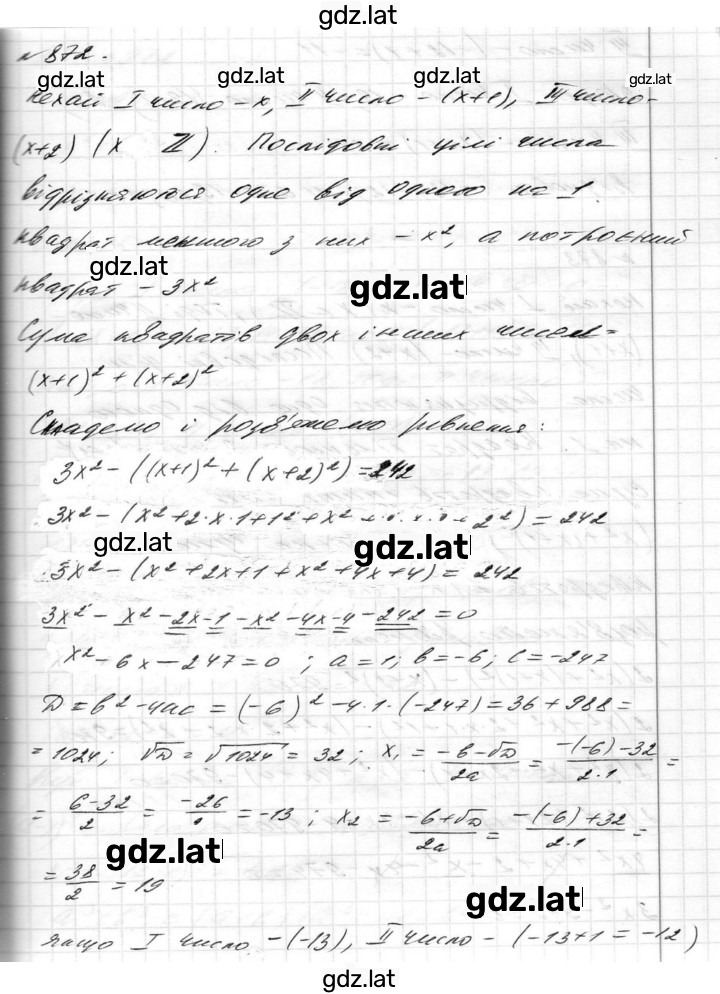 gdz.lat
№872.
gdz.lat gdz.lat gdz.lat
Нехай I число – x, II число – (x+1), III число –
(x+2) (x Z). Послідовні цілі числа
відрізняються одне від одного на 1.
Квадрат меншого з них – x², а потроєний
gdz.lat
квадрат – 3x²
gdz.lat
Сума квадратів двох інших чисел =
(x+1)² + (x+2)²
Складемо і розв'яжемо рівняння:
3x² – ((x+1)² + (x+2)²) = 242
3x² – (x² + 2·x·1 + 1² + x² + 2²) = 242
gdz.lat gdz.lat
3x² – (x² + 2x + 1 + x² + 4x + 4) = 242
3x² – x² – 2x – 1 – x² – 4x – 4 – 242 = 0
x² – 6x – 247 = 0 ; a = 1; b = –6; c = –247
D = b² – 4ac = (–6)² – 4·1·(–247) = 36 + 988 =
= 1024; √D = √1024 = 32; x₁ = (–b–√D)/2a = (–(–6)–32)/2·1 =
= (6–32)/2 = –26/ = –13 ; x₂ = (–b+√D)/2a = (–(–6)+32)/2·1 =
gdz.lat
= 38/2 = 19
gdz.lat
якщо I число – (–13), II число – (–13+1 = –12)
gdz.lat